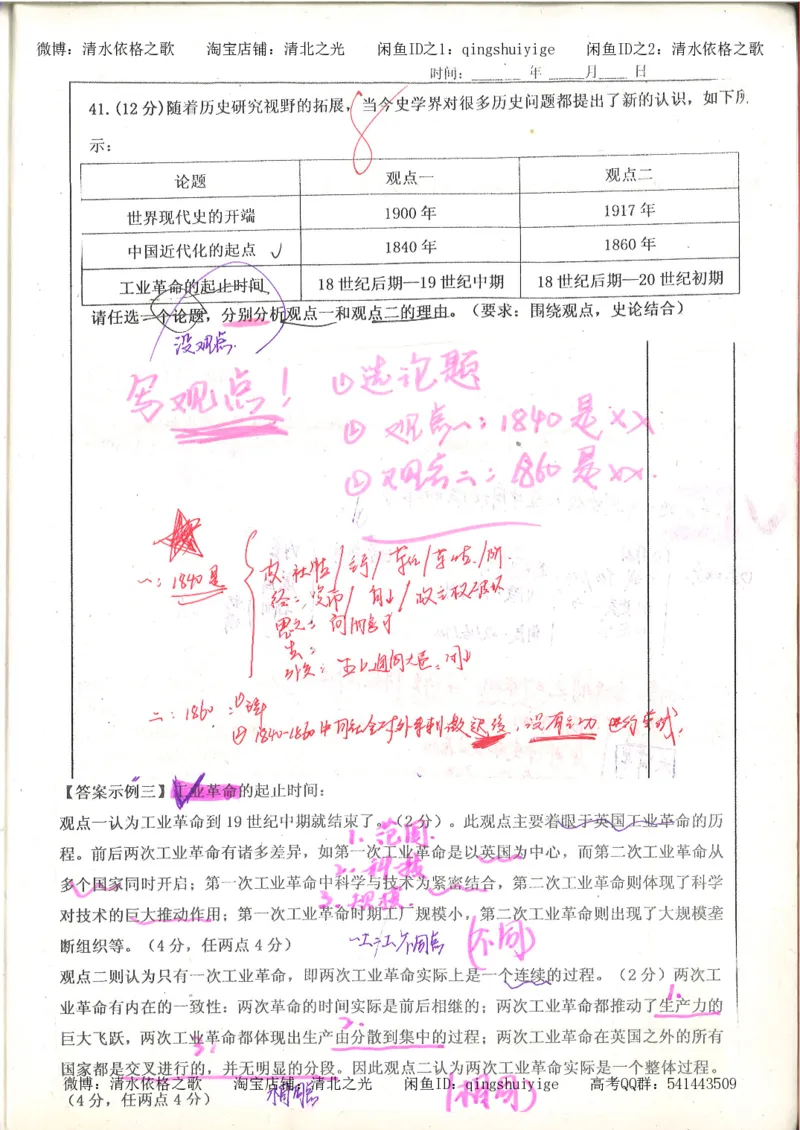 微博：清水依格之歌 淘宝店铺：清北之光 闲鱼ID之1：qingshuiyige 闲鱼ID之2：清水依格之歌
时间：____年____月____日
41.(12分)随着历史研究视野的拓展，当今史学界对很多历史问题都提出了新的认识，如下所
示：
8
论题 观点一 观点二
世界现代史的开端 1900年 1917年
中国近代化的起点 1840年 1860年
工业革命的起止时间 18世纪后期—19世纪中期 18世纪后期—20世纪初期
请任选一个论题，分别分析观点一和观点二的理由。（要求：围绕观点，史论结合）
没观点.
写观点！ ①选论题
②观点一：1840是××
③观点二：1860是××.
一：1840是
二：1860
②1840-1860中国社会对外来刺激迟缓，没有主动
【答案示例三】工业革命的起止时间：
观点一认为工业革命到19世纪中期就结束了。（2分）。此观点主要着眼于英国工业革命的历
1.范围.
程。前后两次工业革命有诸多差异，如第一次工业革命是以英国为中心，而第二次工业革命从
2.科技
多个国家同时开启；第一次工业革命中科学与技术为紧密结合，第二次工业革命则体现了科学
3.规模.
对技术的巨大推动作用；第一次工业革命时期工厂规模小，第二次工业革命则出现了大规模垄
断组织等。（4分，任两点4分）
一工二工不同点 (不同)
观点二则认为只有一次工业革命，即两次工业革命实际上是一个连续的过程。（2分）两次工
业革命有内在的一致性：两次革命的时间实际是前后相继的；两次工业革命都推动了生产力的
1.
巨大飞跃，两次工业革命都体现出生产由分散到集中的过程；两次工业革命在英国之外的所有
2.
3.
国家都是交叉进行的，并无明显的分段。因此观点二认为两次工业革命实际是一个整体过程。
微博：清水依格之歌 淘宝店铺：清北之光 闲鱼ID：qingshuiyige 高考QQ群：541443509
（4分，任两点4分）
相同点 (相同)